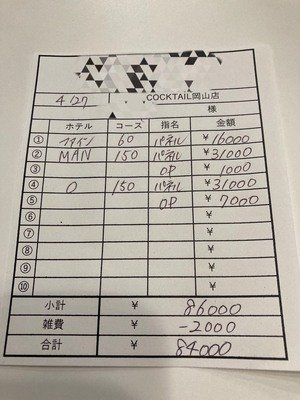 4/27 COCKTAIL岡山店
様
ホテル コース 指名 金額
① ファイン 60 パネル ¥16000
② MAN 150 パネル ¥31000
③ OP ¥1000
④ O 150 パネル ¥31000
⑤ OP ¥7000
⑥ ¥
⑦ ¥
⑧ ¥
⑨ ¥
⑩ ¥
小計 ¥ 86000
雑費 ¥ -2000
合計 ¥ 84000